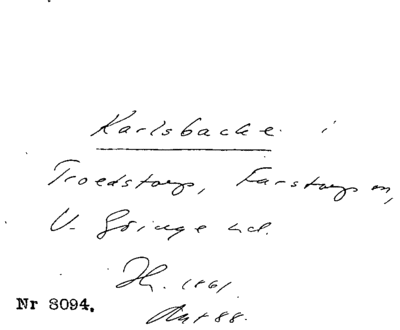 Karlsbacke i
Troedstorp, Farstorp sn,
V. Göinge hd.
Jb. 1861
Nr 8094.